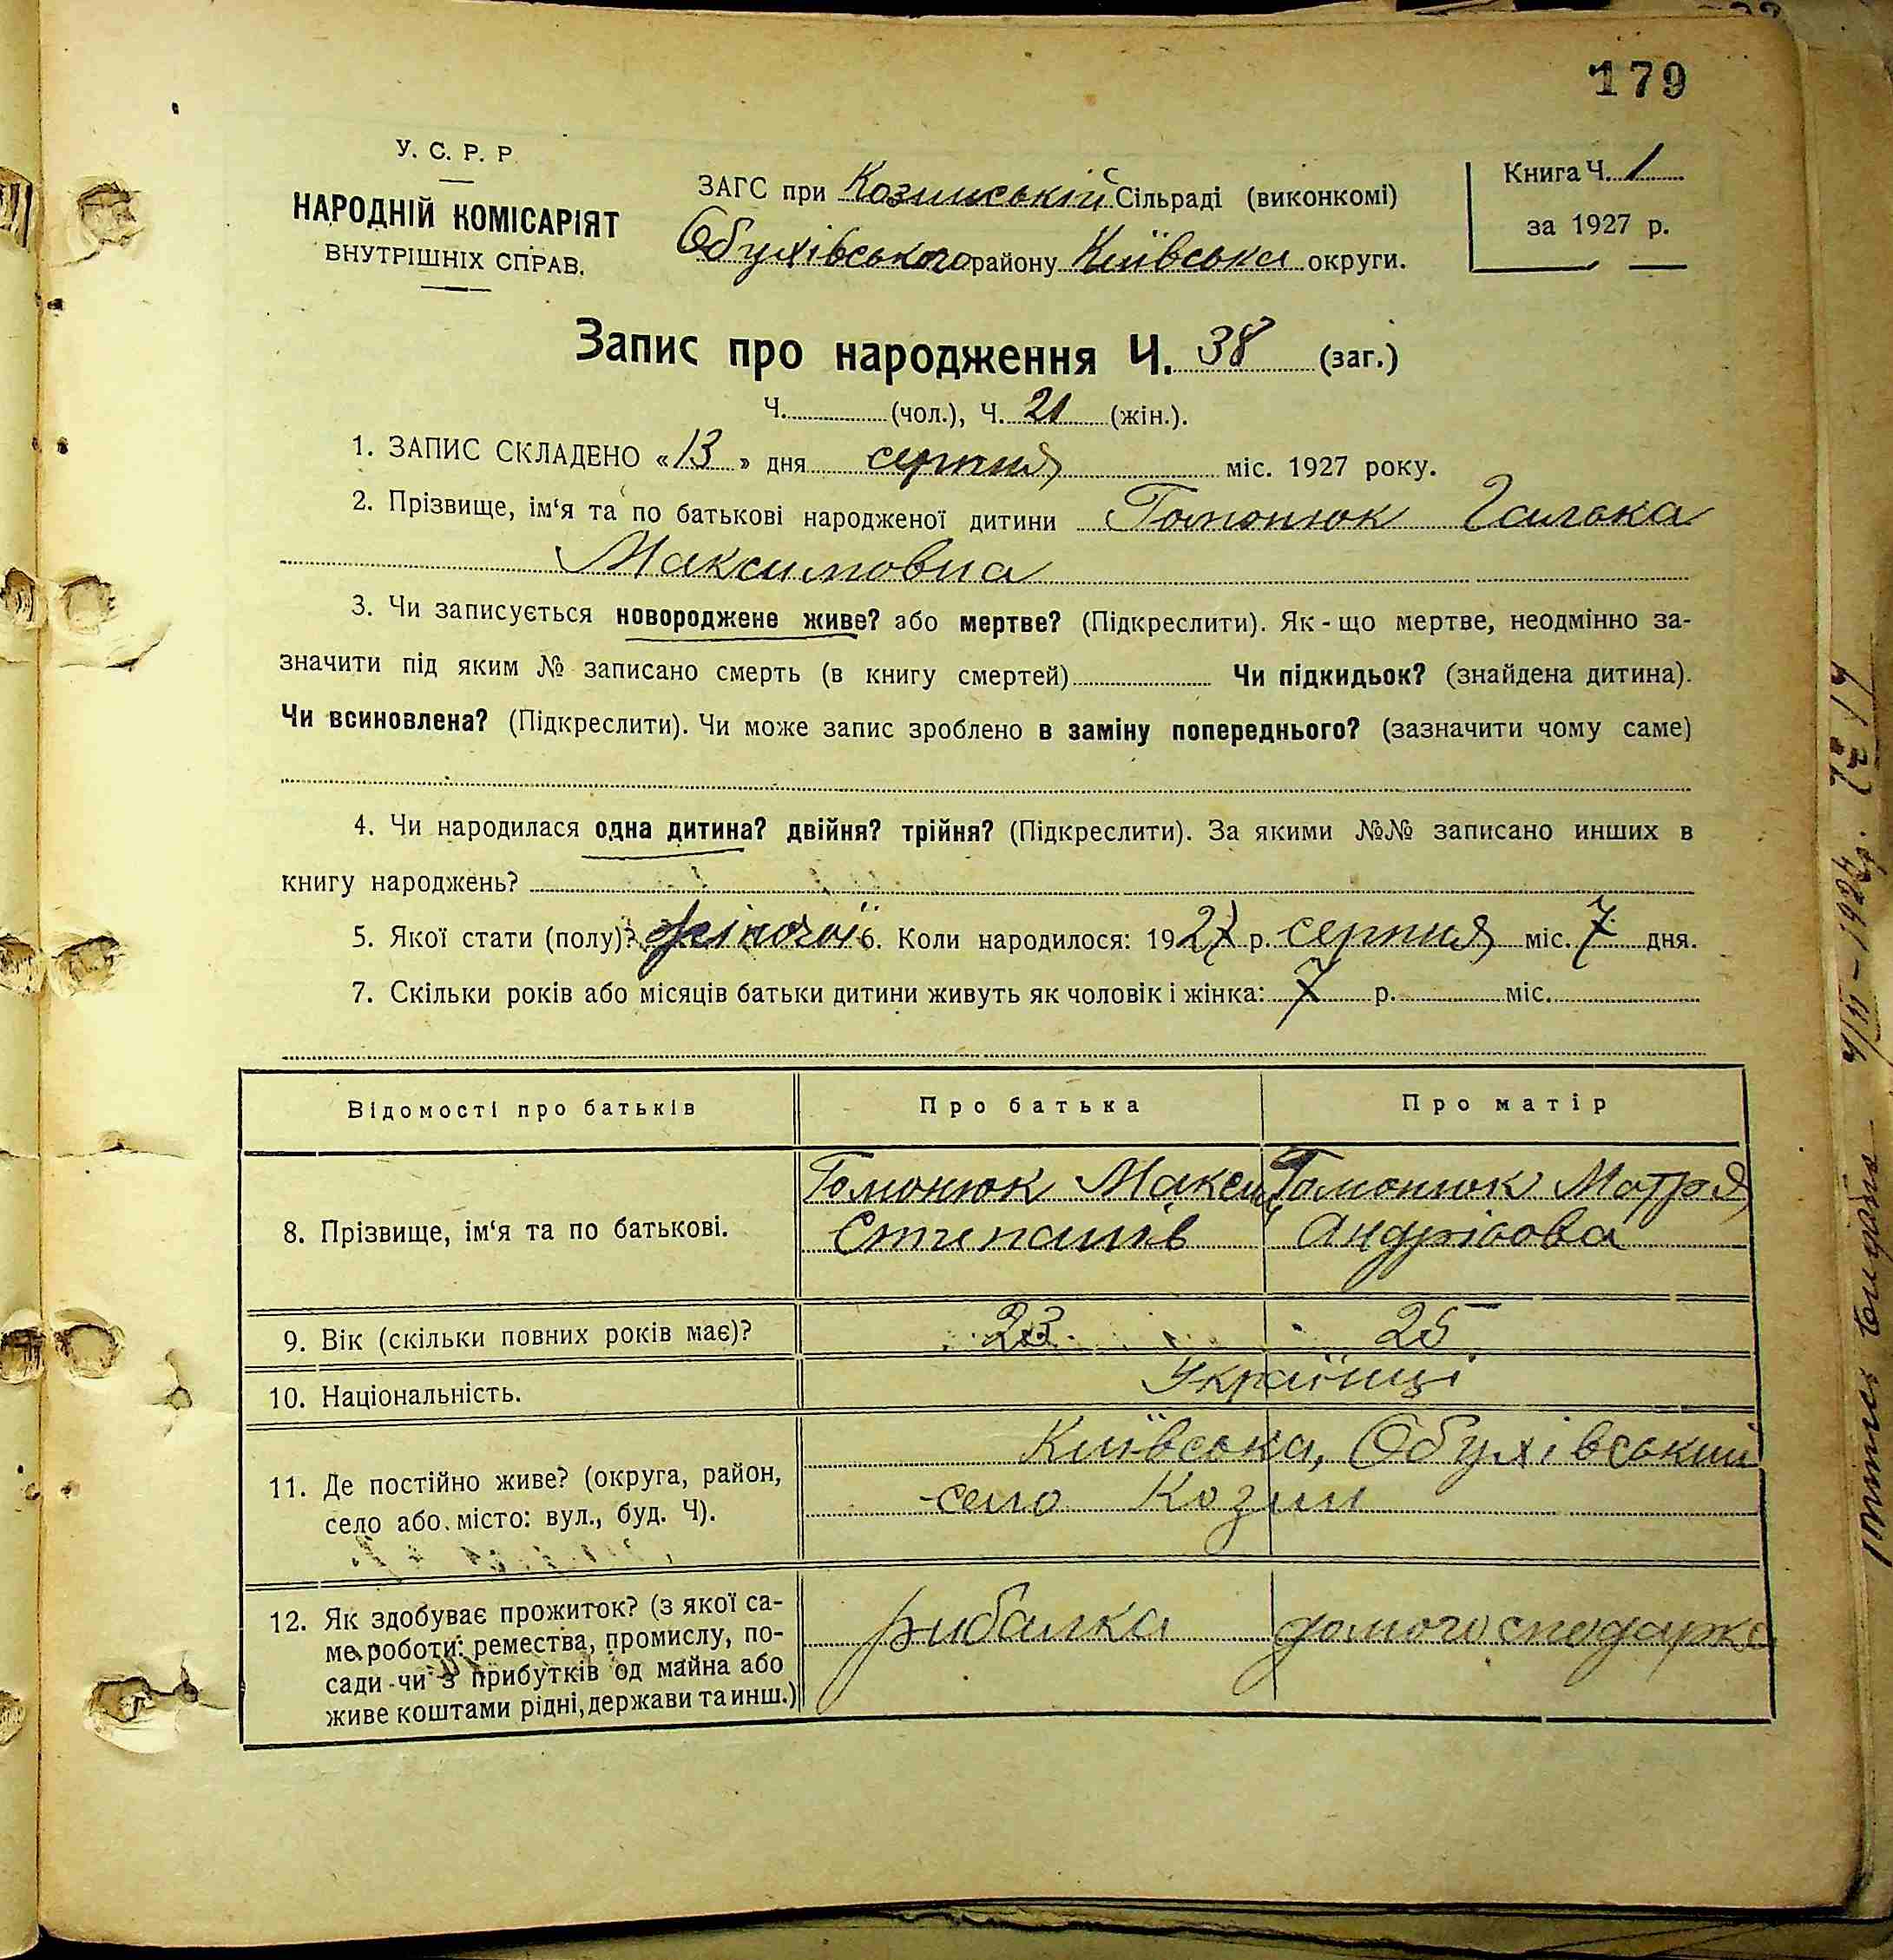 179
У. С. Р. Р
НАРОДНІЙ КОМІСАРІЯТ
ВНУТРІШНІХ СПРАВ.
ЗАГС при Козинській Сільраді (виконкомі)
Обухівського району Київська округи.
Книга Ч. 1
за 1927 р.
Запис про народження Ч. 38 (заг.)
Ч. (чол.), Ч. 21 (жін.).
1. ЗАПИС СКЛАДЕНО «13» дня серпня міс. 1927 року.
2. Прізвище, ім'я та по батькові народженої дитини Гомонюк Галька
Максимовна
3. Чи записується новороджене живе? або мертве? (Підкреслити). Як-що мертве, неодмінно за-
значити під яким № записано смерть (в книгу смертей) Чи підкидьок? (знайдена дитина).
Чи всиновлена? (Підкреслити). Чи може запис зроблено в заміну попереднього? (зазначити чому саме)
4. Чи народилася одна дитина? двійня? трійня? (Підкреслити). За якими №№ записано инших в
книгу народжень?
5. Якої стати (полу)? жіночої 6. Коли народилося: 1927 р. серпня міс. 7 дня.
7. Скільки років або місяців батьки дитини живуть як чоловік і жінка: 7 р. міс.
Відомості про батьків Про батька Про матір
Гомонюк Максим Гомонюк Мотря
8. Прізвище, ім'я та по батькові. Степанів Андрієва
9. Вік (скільки повних років має)? 23 25
10. Національність. Українці
Київська, Обухівський
11. Де постійно живе? (округа, район, село Козин
село або місто: вул., буд. Ч).
12. Як здобуває прожиток? (з якої са-
ме роботи: ремества, промислу, по- рибалка домогосподарка
сади чи з прибутків од майна або
живе коштами рідні, держави та инш.)